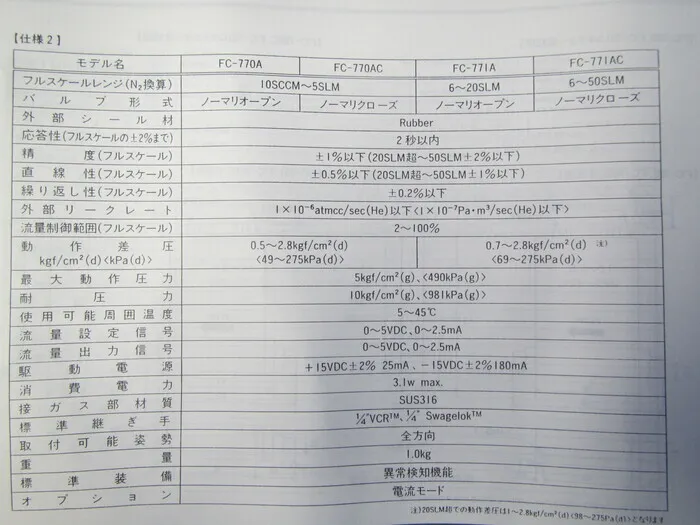 【仕様2】
モデル名 FC-770A FC-770AC FC-771A FC-771AC
フルスケールレンジ(N₂換算) 10SCCM〜5SLM 6〜20SLM 6〜50SLM
バルブ形式 ノーマリオープン ノーマリクローズ ノーマリオープン ノーマリクローズ
外部シール材 Rubber
応答性(フルスケールの±2%まで) 2秒以内
精度(フルスケール) ±1%以下(20SLM超〜50SLM±2%以下)
直線性(フルスケール) ±0.5%以下(20SLM超〜50SLM±1%以下)
繰り返し性(フルスケール) ±0.2%以下
外部リークレート 1×10⁻⁶atmcc/sec(He)以下<1×10⁻⁷Pa・m³/sec(He)以下>
流量制御範囲(フルスケール) 2〜100%
動作差圧 0.5〜2.8kgf/cm²(d) 0.7〜2.8kgf/cm²(d) 注)
kgf/cm²(d)<kPa(d)> <49〜275kPa(d)> <69〜275kPa(d)>
最大動作圧力 5kgf/cm²(g)、<490kPa(g)>
耐圧力 10kgf/cm²(g)、<981kPa(g)>
使用可能周囲温度 5〜45℃
流量設定信号 0〜5VDC、0〜2.5mA
流量出力信号 0〜5VDC、0〜2.5mA
駆動電源 +15VDC±2% 25mA、-15VDC±2%180mA
消費電力 3.1w max.
接ガス部材質 SUS316
標準継ぎ手 ¼"VCR™、¼" Swagelok™
取付可能姿勢 全方向
重量 1.0kg
標準装備 異常検知機能
オプション 電流モード
注)20SLM超での動作差圧は1〜2.8kgf/cm²(d)<98〜275Pa(d)>となります